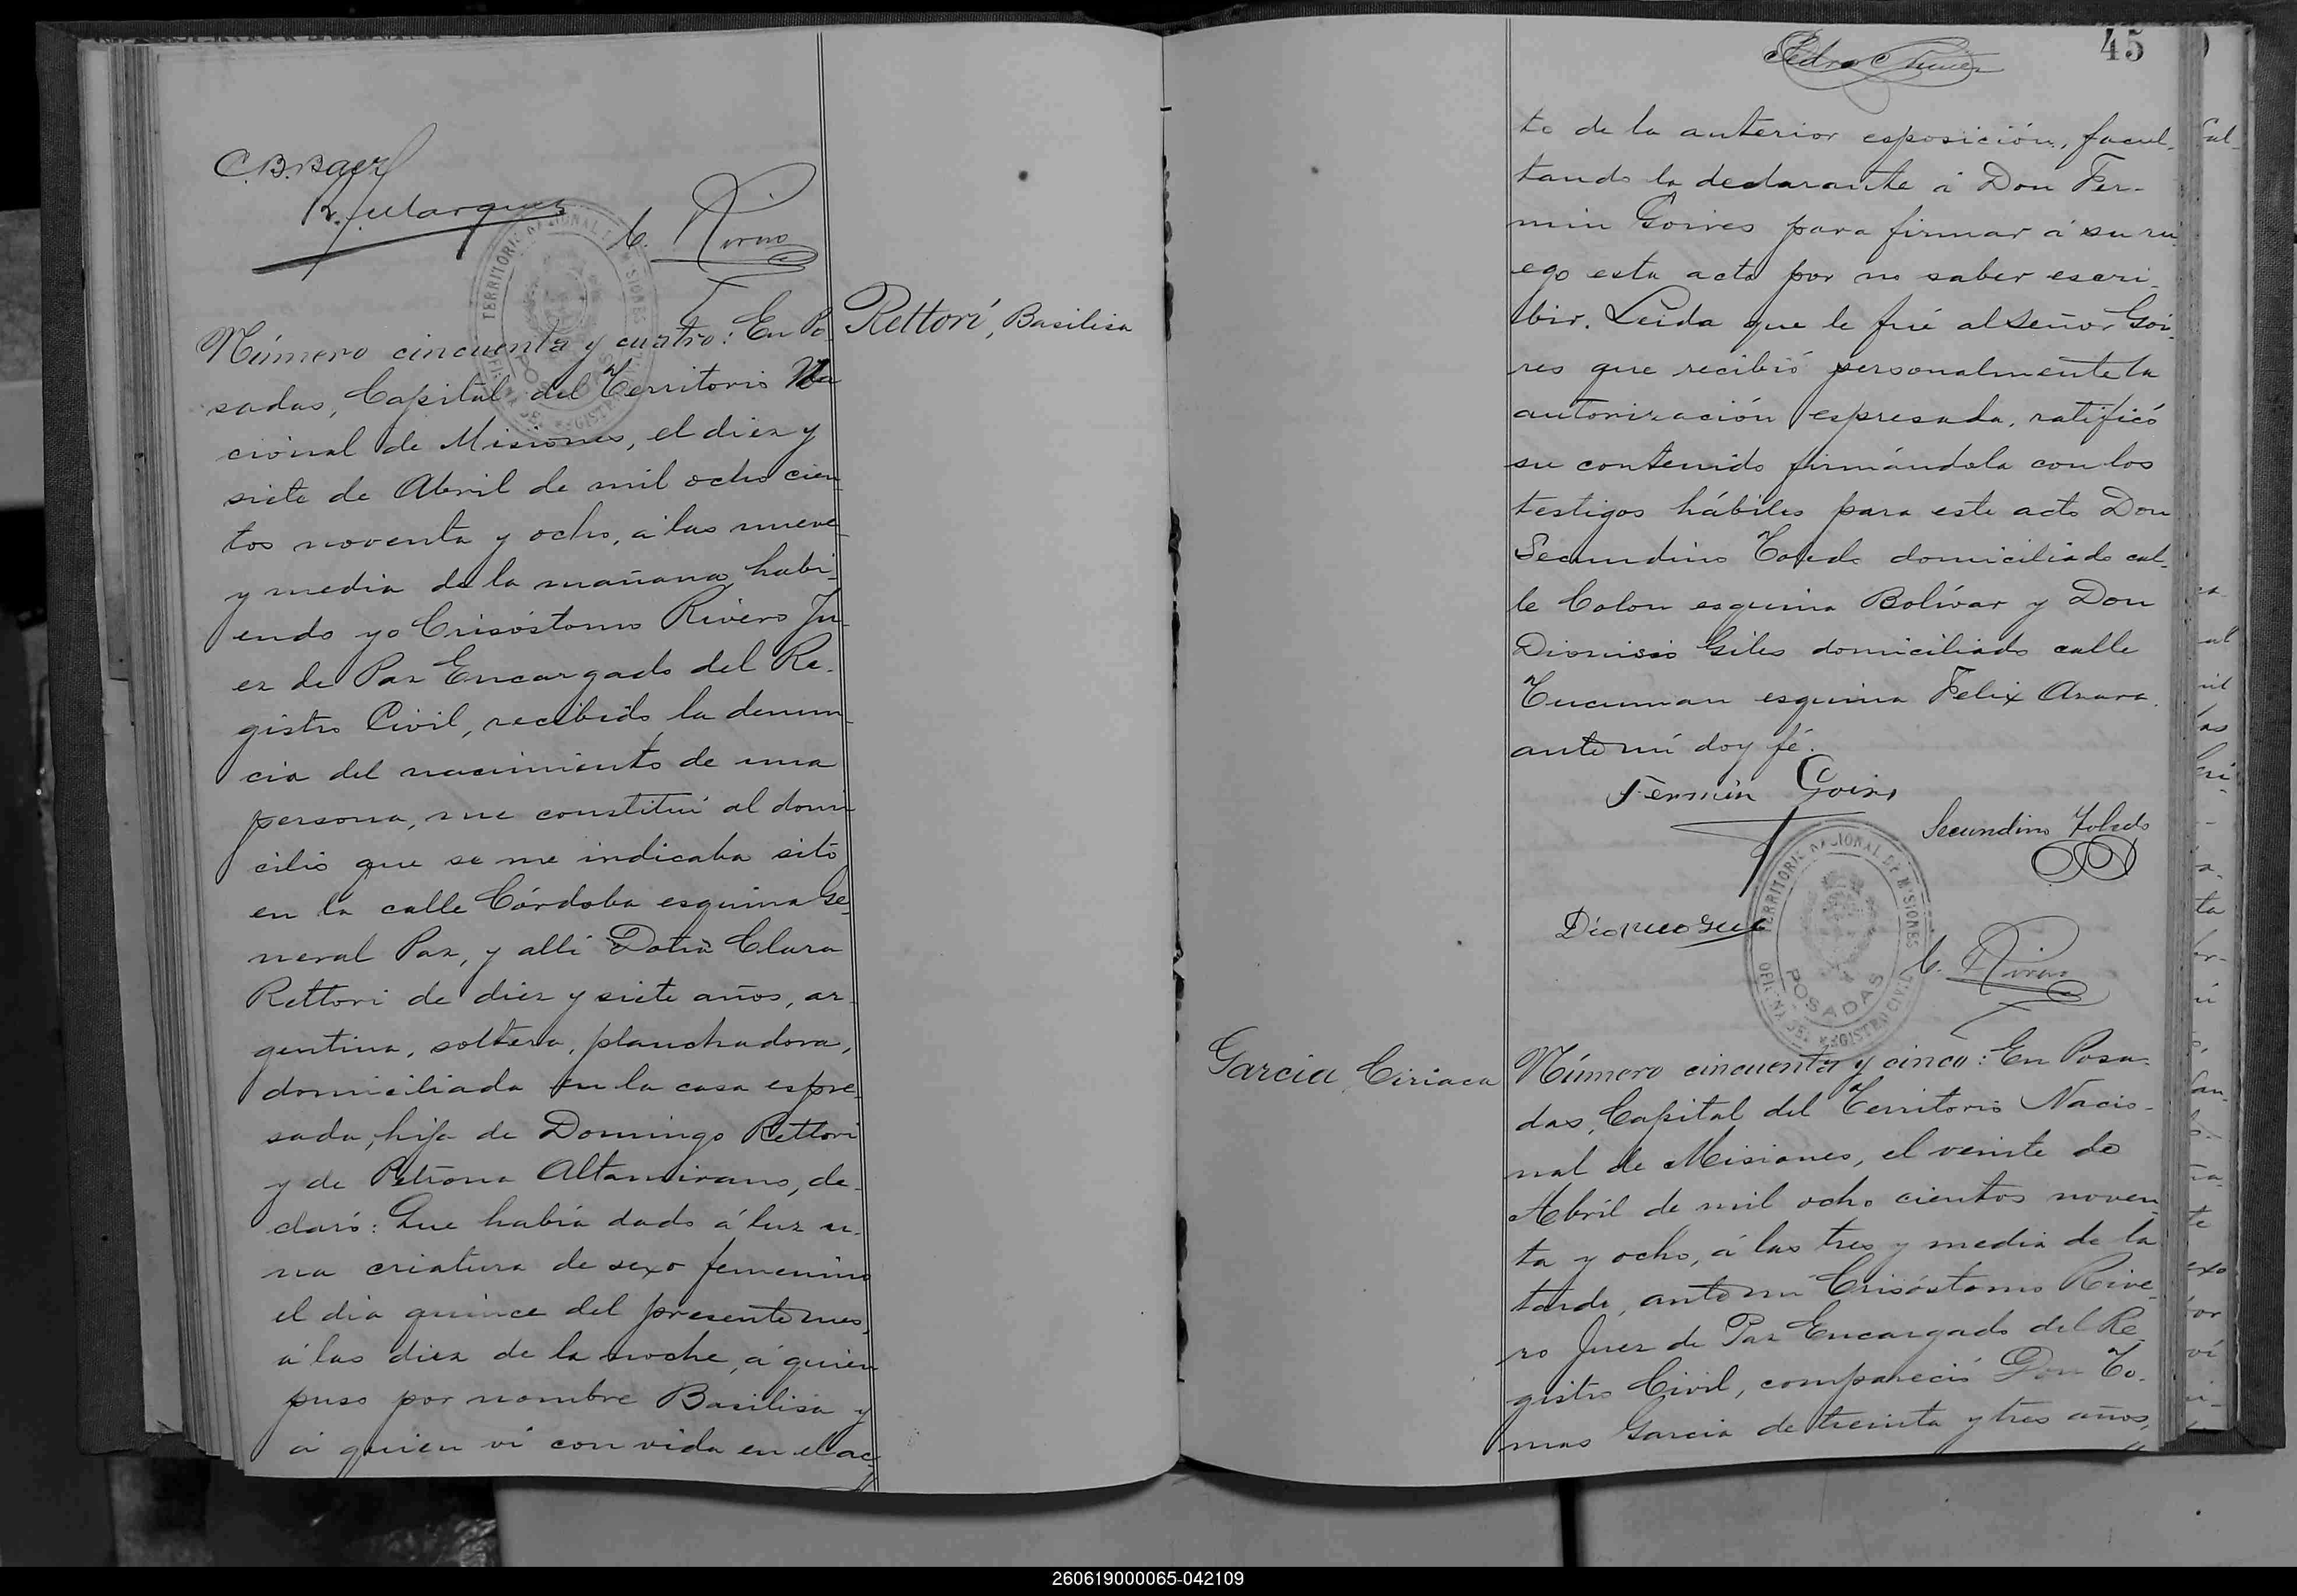 C. B. Baez
R. Marquez
C. Rivero
Rettori, Basilisa
Número cincuenta y cuatro: En Po-
sadas, Capital del Territorio Na
cional de Misiones, el diez y
siete de Abril de mil ocho cien
tos noventa y ocho, á las nueve
y media de la mañana, habi-
endo yo Crisóstomo Rivero Ju-
ez de Paz Encargado del Re-
gistro Civil, recibido la denun-
cia del nacimiento de una
persona, me constituí al domi
cilio que se me indicaba sito
en la calle Córdoba esquina Ge-
neral Paz, y alli Doña Clara
Rettori de diez y siete años, ar-
gentina, soltera, planchadora,
domiciliada en la casa espre-
sada, hija de Domingo Rettori
y de Petrona Altamirano, de-
claró: Que había dado á luz u-
na criatura de sexo femenino
el dia quince del presente mes,
á las diez de la noche, á quien
puso por nombre Basilisa y
á quien vi con vida en el ac-
TERRITORIO NACIONAL DE MISIONES
OFICINA DEL REGISTRO CIVIL
POSADAS
45
Pedro Nuñez
to de la anterior esposición, facul-
tando la declarante á Don Fer-
min Goires para firmar á su ru
ego esta acta por no saber escri-
bir. Leida que le fué al Señor Goi-
res que recibió personalmente la
autorización espresada, ratificó
su contenido firmándola con los
testigos hábiles para este acto Don
Secundino Toledo domiciliado cal-
le Colon esquina Bolívar y Don
Dionisio Giles domiciliado calle
Tucuman esquina Felix Azara.
ante mí doy fé.
Fermin Goires
Secundino Toledo
C. Rivero
TERRITORIO NACIONAL DE MISIONES
OFICINA DEL REGISTRO CIVIL
POSADAS
Garcia, Ciriaca
Número cincuenta y cinco: En Posa-
das, Capital del Territorio Nacio-
nal de Misiones, el veinte de
Abril de mil ocho cientos noven
ta y ocho, á las tres y media de la
tarde, ante mi Crisóstomo Rive-
ro Juez de Paz Encargado del Re-
gistro Civil, compareció Don To-
mas Garcia de treinta y tres años,
260619000065-042109